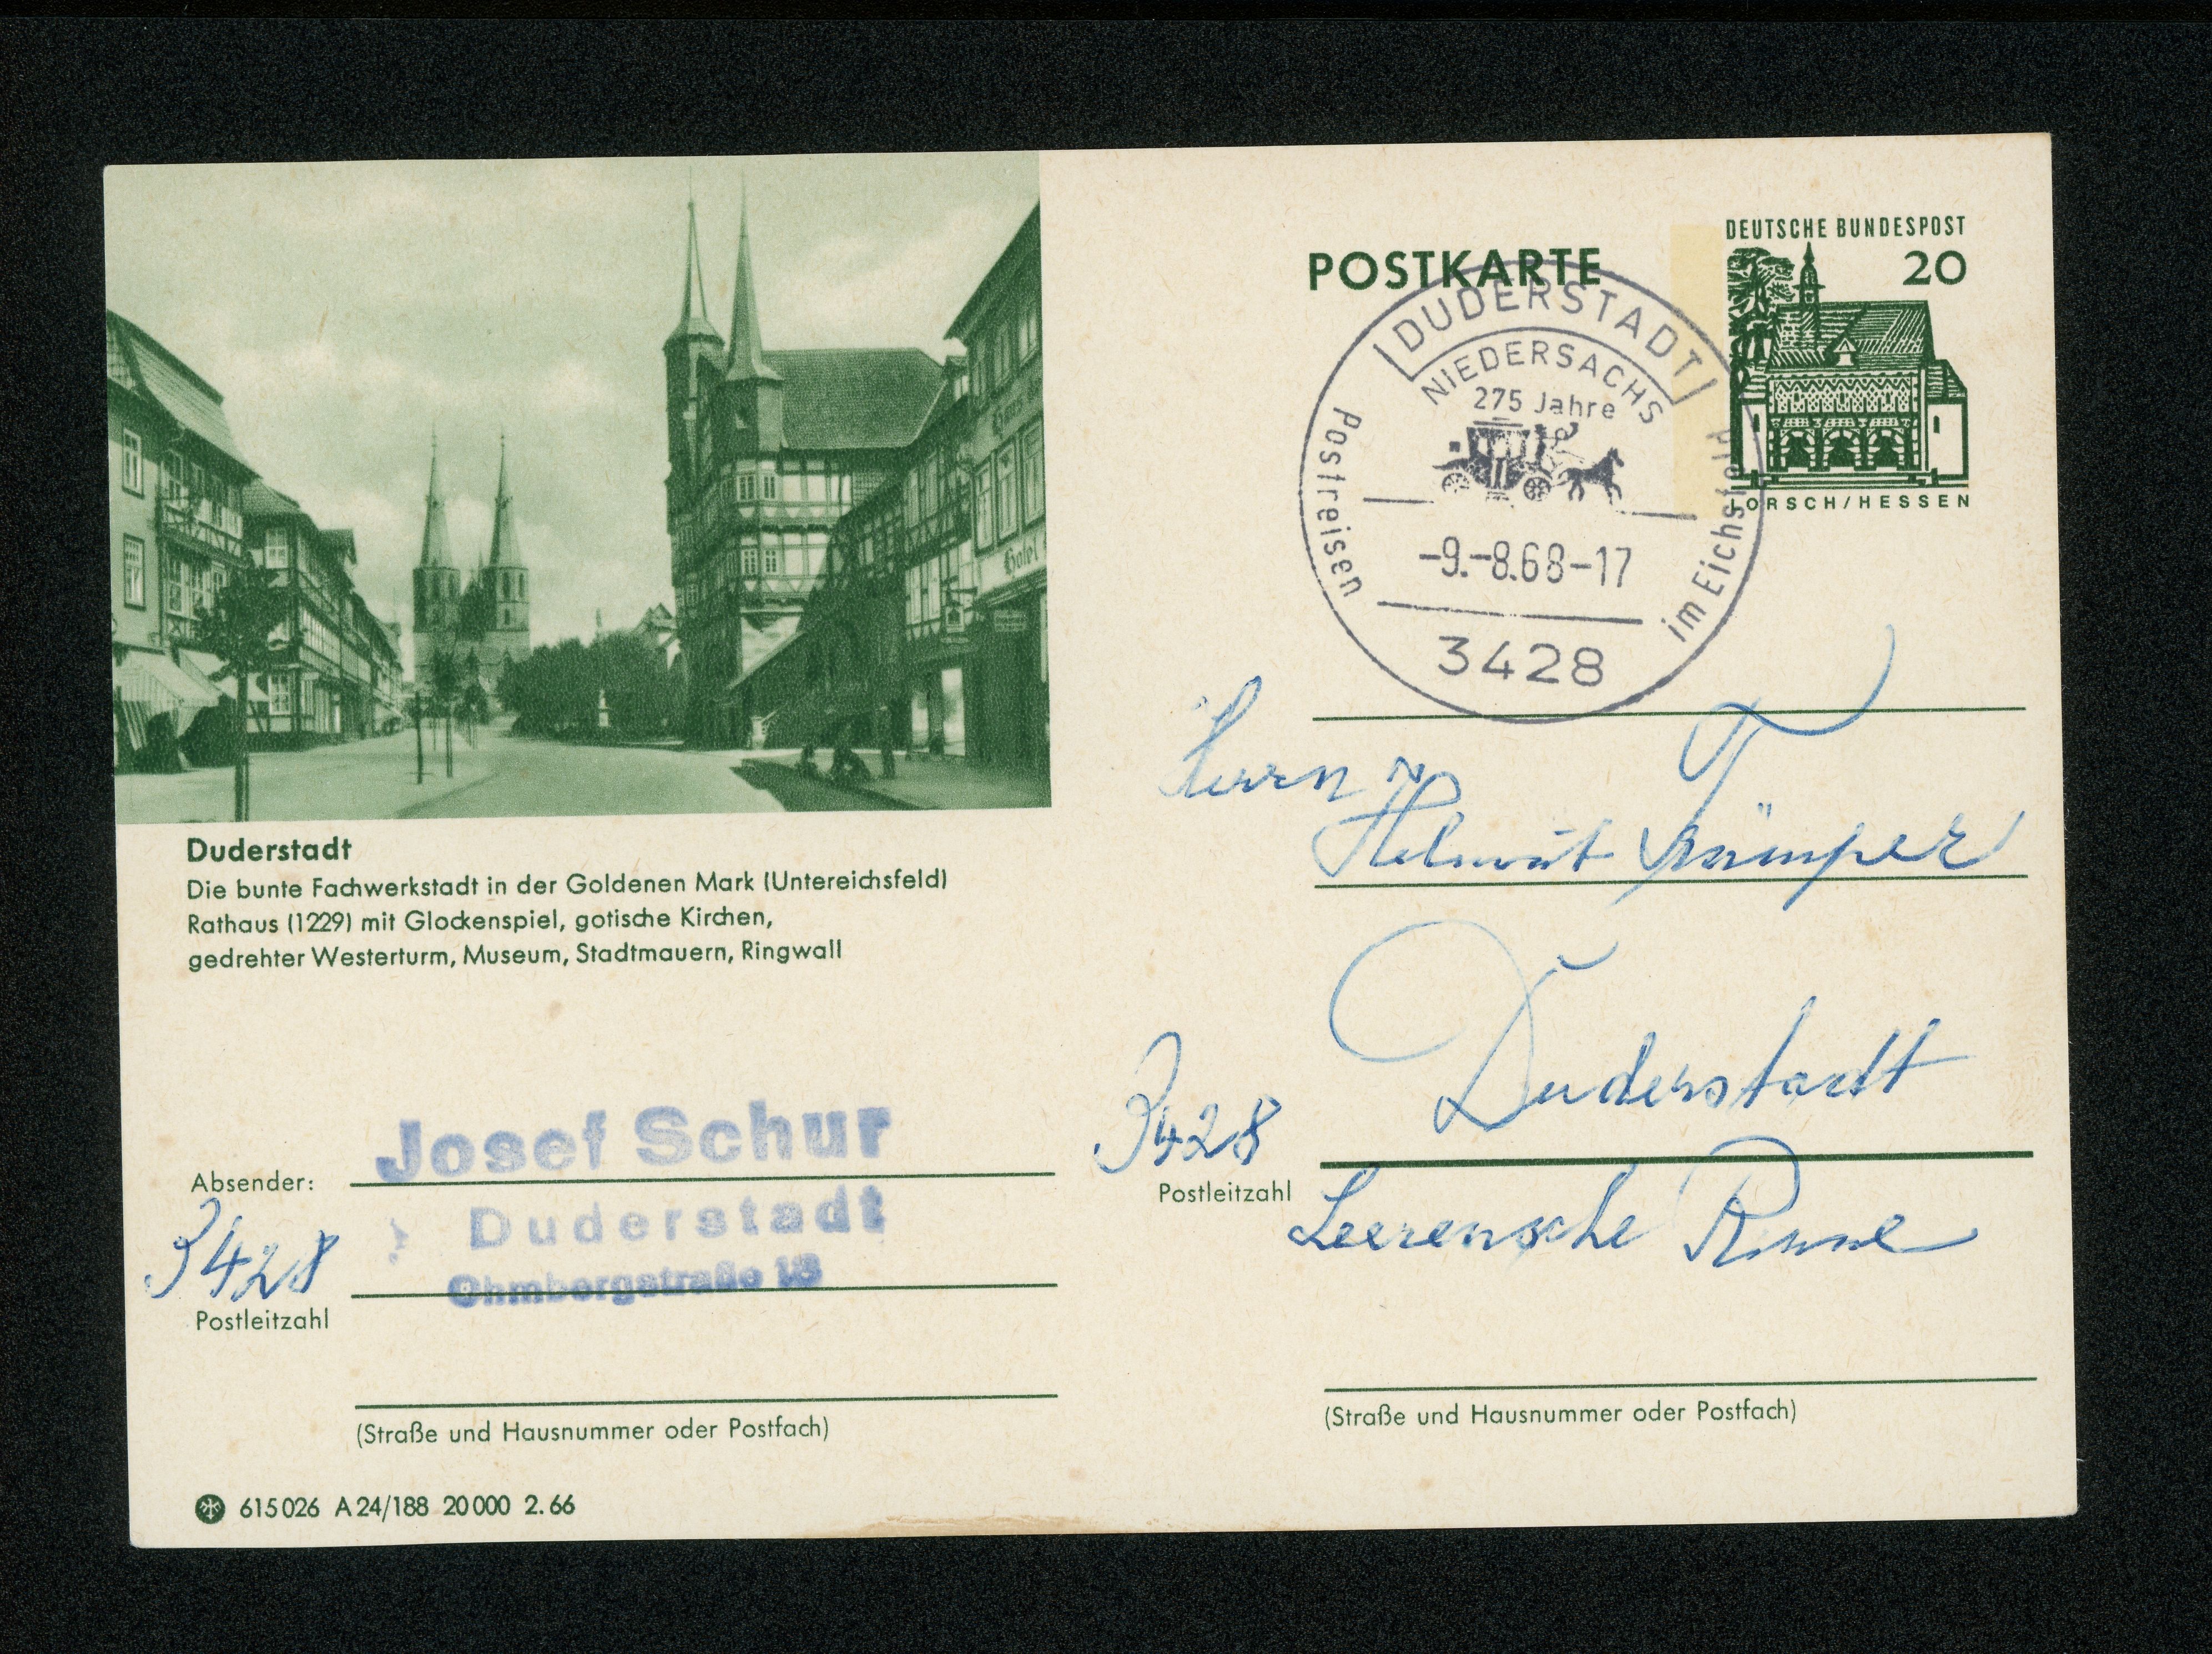 Haus
Hotel
Duderstadt
Die bunte Fachwerkstadt in der Goldenen Mark (Untereichsfeld)
Rathaus (1229) mit Glockenspiel, gotische Kirchen,
gedrehter Westerturm, Museum, Stadtmauern, Ringwall
Absender:
Josef Schur
Duderstadt
3428
Postleitzahl
(Straße und Hausnummer oder Postfach)
615026 A 24/188 20 000 2. 66
POSTKARTE
DEUTSCHE BUNDESPOST
20
LORSCH/HESSEN
DUDERSTADT
NIEDERSACHS
275 Jahre
Postreisen
im Eichsfeld
-9.-8.68-17
3428
Herrn
Helmut
Duderstadt
3428
Postleitzahl
(Straße und Hausnummer oder Postfach)